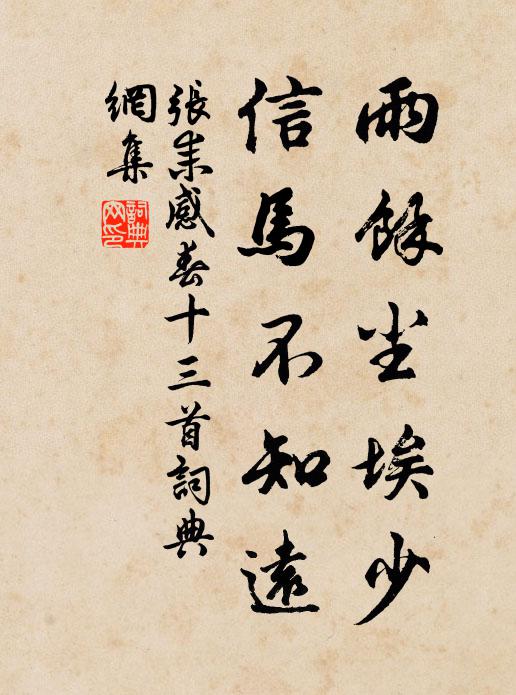 雨餘尘埃少
信馬不知遠
張耒感春十三首詞典
網集
詞典
网印